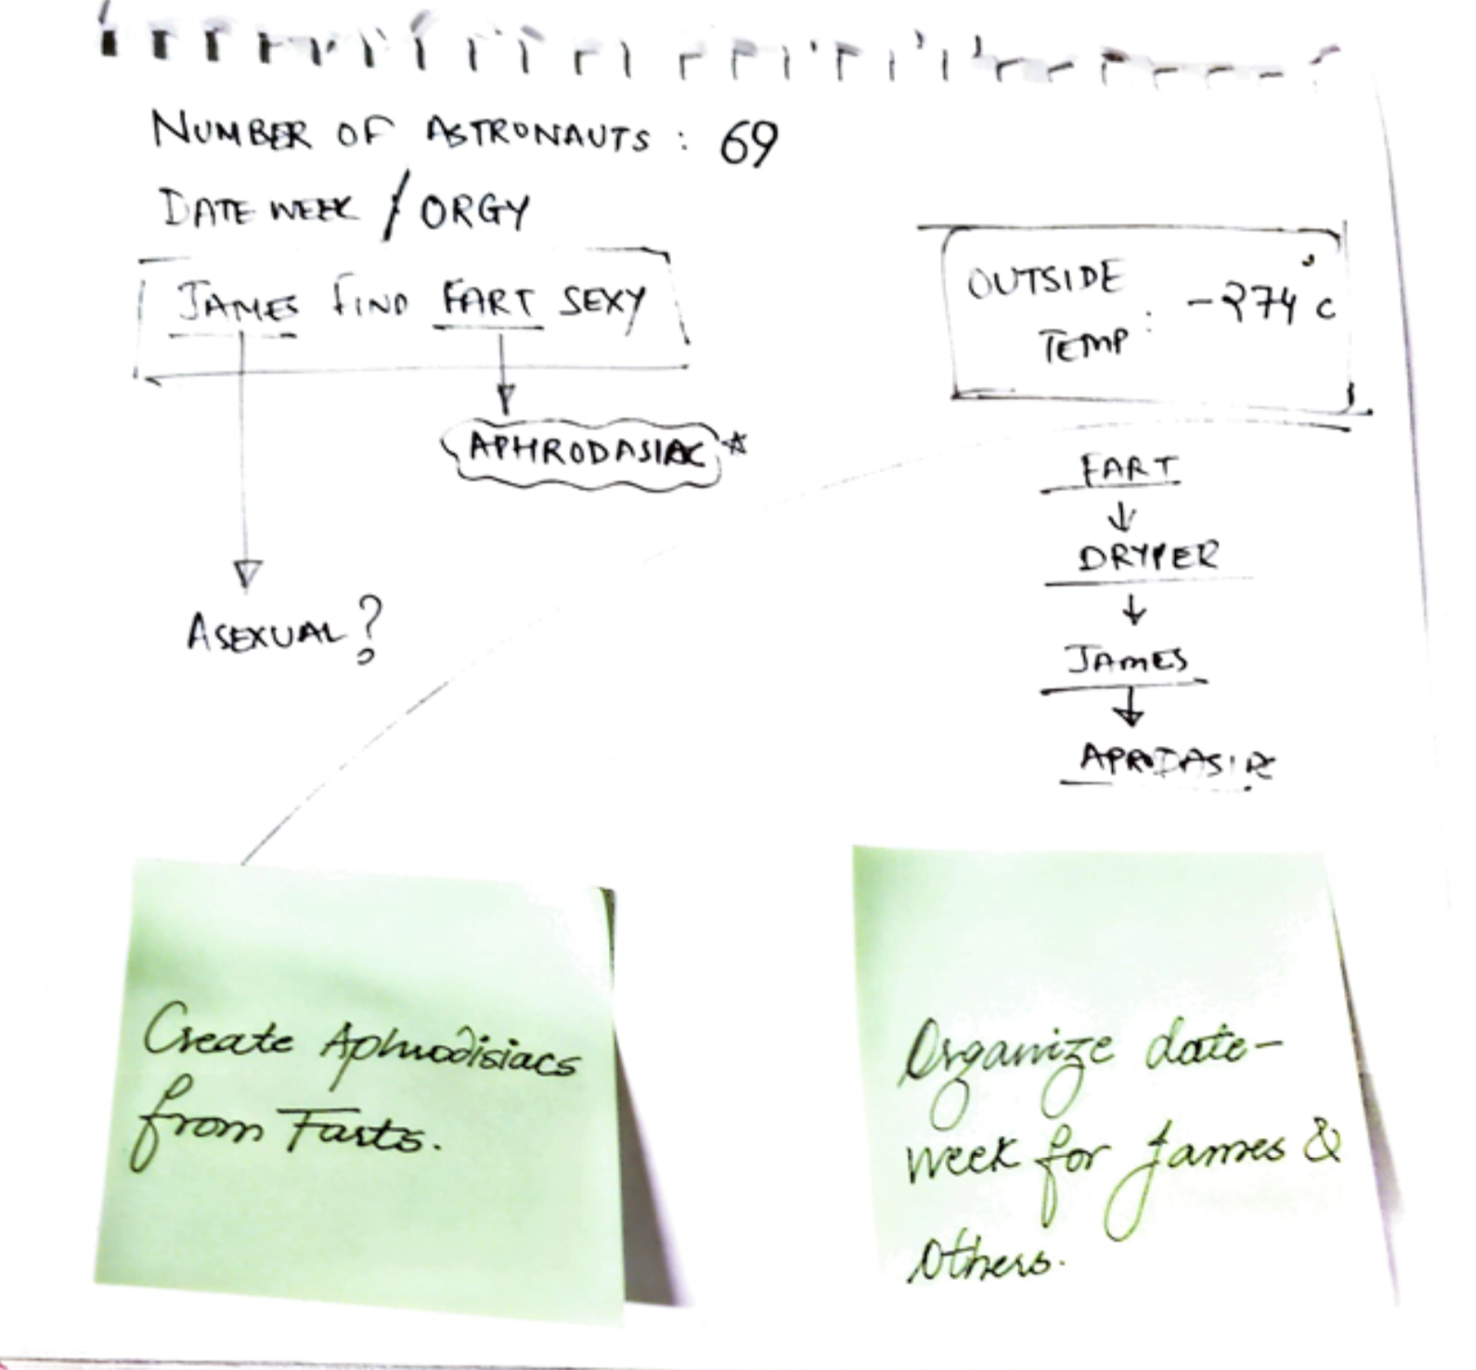 NUMBER OF ASTRONAUTS : 69
DATE WEEK / ORGY
JAMES FIND FART SEXY
APHRODASIAC *
ASEXUAL ?
OUTSIDE
TEMP : -274°C
FART
DRYPER
JAMES
APRODASIC
Create Aphrodisiacs
from Farts.
Organize date-
week for James &
others.